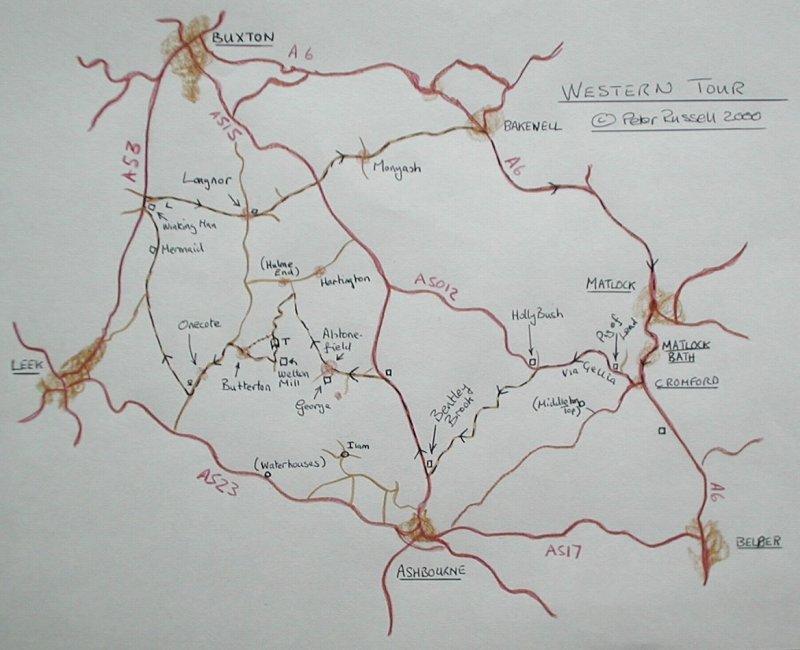 BUXTON
A6
WESTERN TOUR
© Peter Russell 2000
BAKEWELL
A6
A515
A53
Monyash
Longnor
L
Winking Man
Mermaid
(Hulme
End)
Hartington
A5012
MATLOCK
Holly Bush
Pig of
Lead
MATLOCK
BATH
Via Gellia
CROMFORD
(Middleton
Top)
Onecote
T
Alstone-
field
Wetton
Mill
Butterton
George
LEEK
Bentley
Brook
Ilam
(Waterhouses)
A523
A6
A517
BELPER
ASHBOURNE